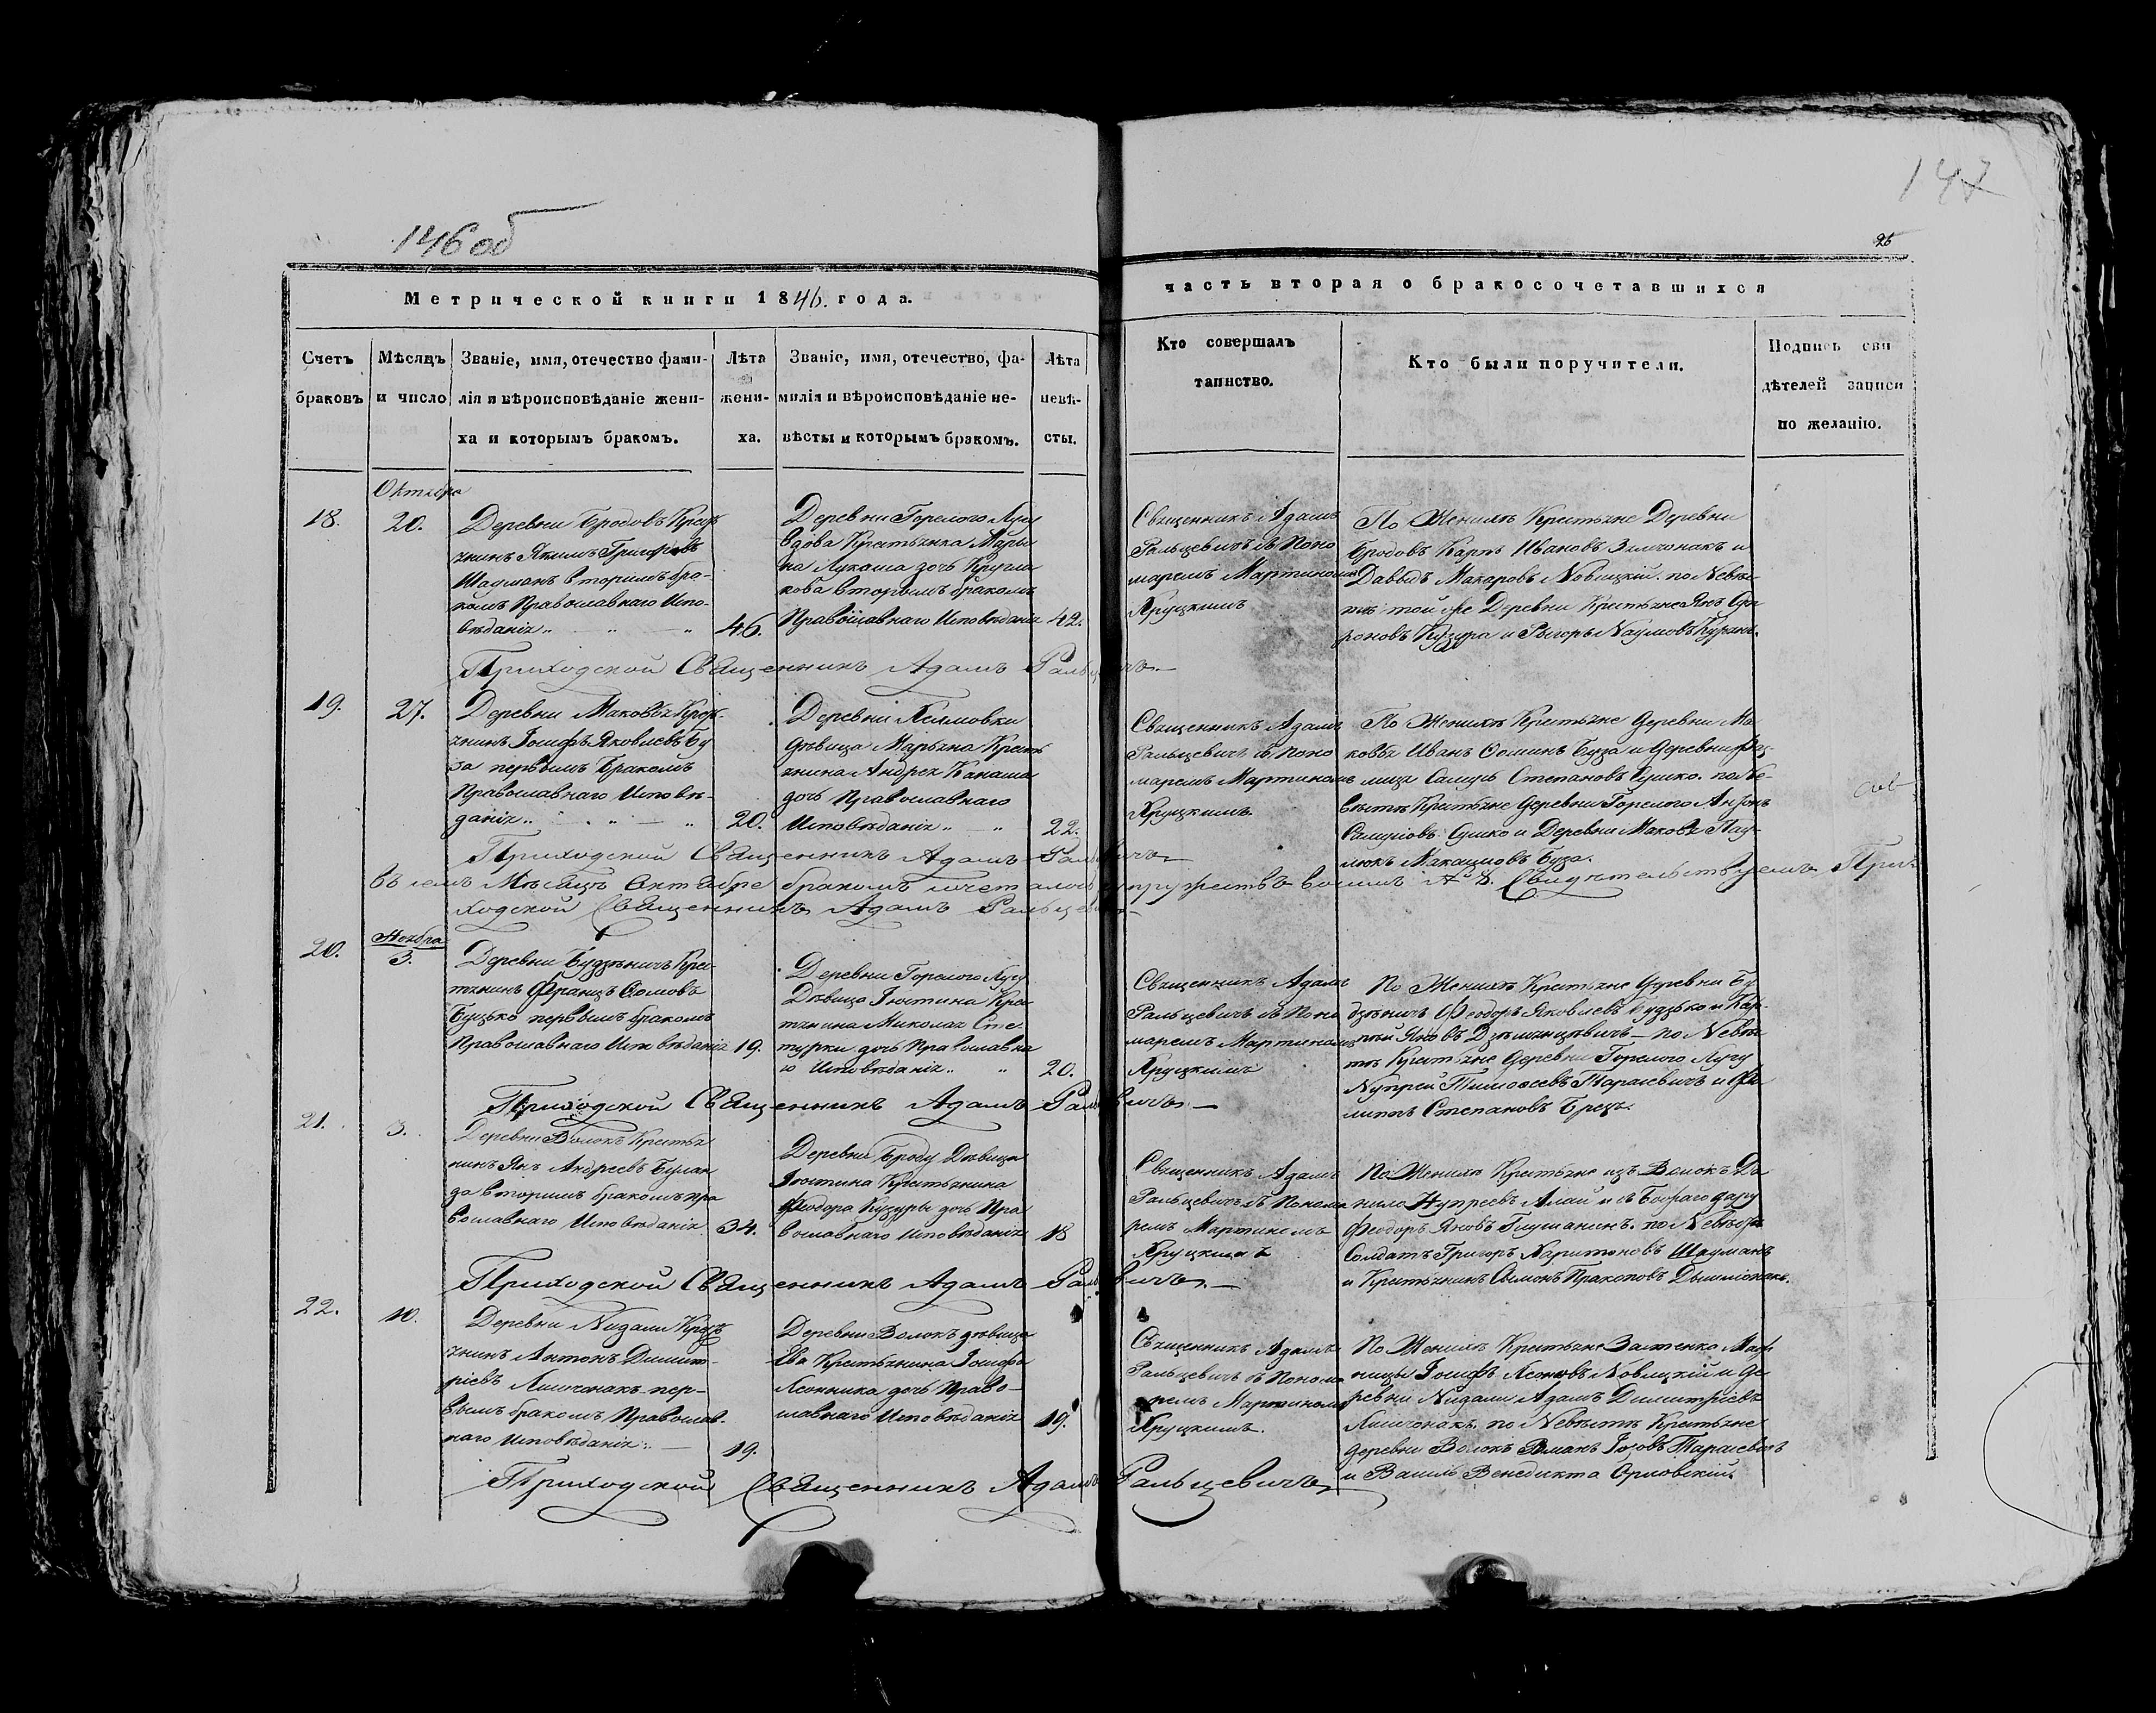 146 об
147
26
Метрической книги 1846. года.
часть вторая о бракосочетавшихся
Счетъ браковъ
Мѣсяцъ и число
Званіе, имя, отечество фами-
лія и вѣроисповѣданіе жени-
ха и которымъ бракомъ.
Лѣта
жени-
ха.
Званіе, имя, отечество, фа-
милія и вѣроисповѣданіе не-
вѣсты и которымъ бракомъ.
Лѣта
невѣ-
сты.
Кто совершалъ
таинство.
Кто были поручители.
Подпись сви
дѣтелей записи
по желанію.
Октября
18.
20.
Деревни Бродовъ Кресть
янинъ Якимъ Григоровъ
Шауманъ вторимъ бра-
комъ Православнаго Испо-
вѣданія
46.
Деревни Горелого Лугу
вдова Крестьянка Марья
на Лукаша дочь
вторымъ бракомъ
Православнаго Исповѣданія
42.
Священникъ Адамъ
Ральцевичъ съ Поно
маремъ Мартиномъ
Круцкимъ
По Женихѣ Крестьяне Деревни
Бродовъ Карпъ Ивановъ и
Давыдъ Макаровъ Новицкій. по Невѣс
тѣ той же Деревни Крестьяне Янъ
Кузура и Рыгоръ Наумовъ
Приходской Священникъ Адамъ Ральцевичъ
19.
27.
Деревни Маковья Кресть-
янинъ Іосифъ Яковлевъ Бу
за первымъ бракомъ
Православнаго Исповѣ-
данія
20.
Деревни
дѣвица Марьяна Кресть
янина Андрея Канаша
дочь Православнаго
Исповѣданія
22.
Священникъ Адамъ
Ральцевичъ съ Поно
маремъ Мартиномъ
Круцкимъ.
По Женихѣ Крестьяне деревни Ма-
ковья Иванъ Ѳоминъ Буза и деревни
Степановъ Сушко. по Не-
вѣстѣ Крестьяне деревни Горелого
Сушко и Деревни Маковья Пав-
люкъ Буза.
Приходской Священникъ Адамъ Ральцевичъ
въ семъ Мѣсяцѣ Октябре бракомъ сочеталось супружествъ восимъ № 8. Свидѣтельствуемъ При-
ходской Священникъ Адамъ Ральцевичъ
20.
Ноября
3.
Деревни Будзѣничъ Крес-
тянинъ Францъ Сѣомовъ
Буцько первымъ бракомъ
Православнаго Исповѣданія
19.
Деревни Горелого Лугу
Дѣвица Іюстина Крес
тянина Миколая Сте-
турки дочь Православна
го Исповѣданія
20.
Священникъ Адамъ
Ральцевичъ съ Поно
маремъ Мартиномъ
Круцкимъ
По Женихѣ Крестьяне деревни Бу
дзѣничъ Феодоръ Яковлевъ Будзько и Кар-
пей Яновъ по Невѣс
тѣ Крестьяне деревни Горелого Лугу
Купрей Тимоѳеевъ Тарасевичъ и Фи
липъ Степановъ
Приходской Священникъ Адамъ Ральцевичъ
21.
3.
Деревни Волокъ Крестья
нинъ Янъ Андреевъ Булан
да вторимъ бракомъ Пра
вославнаго Исповѣданія
34.
Деревни Броду Дѣвица
Іюстина Крестьянина
Феодора Кузуры дочь Пра
вославнаго Исповѣданія
18
Священникъ Адамъ
Ральцевичъ съ Понома
ремъ Мартиномъ
Круцкимъ
По Женихѣ Крестьяне изъ Волокъ Да
нило Купреевъ и съ Божаго дару
Феодоръ Яновъ Глушанинъ. по Невѣстѣ
Солдатъ Григоръ Харитоновъ Шауманъ
и Крестьянинъ Сымонъ Пракоповъ
Приходской Священникъ Адамъ Ральцевичъ
22.
10.
Деревни Кресть
янинъ Антонъ Димит-
ріевъ Лишчонакъ пер-
вымъ бракомъ Православ-
наго Исповѣданія
19.
Деревни Волокъ дѣвица
Ева Крестьянина Іосифа
дочь Право-
славнаго Исповѣданія
19.
Священникъ Адамъ
Ральцевичъ съ Понома
ремъ Мартиномъ
Круцкимъ.
По Женихѣ Крестьяне Застенка
Іосифъ Новицкій и де
ревни Адамъ Димитріевъ
Лишчонакъ. по Невѣстѣ Крестьяне
деревни Волокъ Тарасевичъ
и Василь Венедикта Орловскій
Приходской Священникъ Адамъ Ральцевичъ